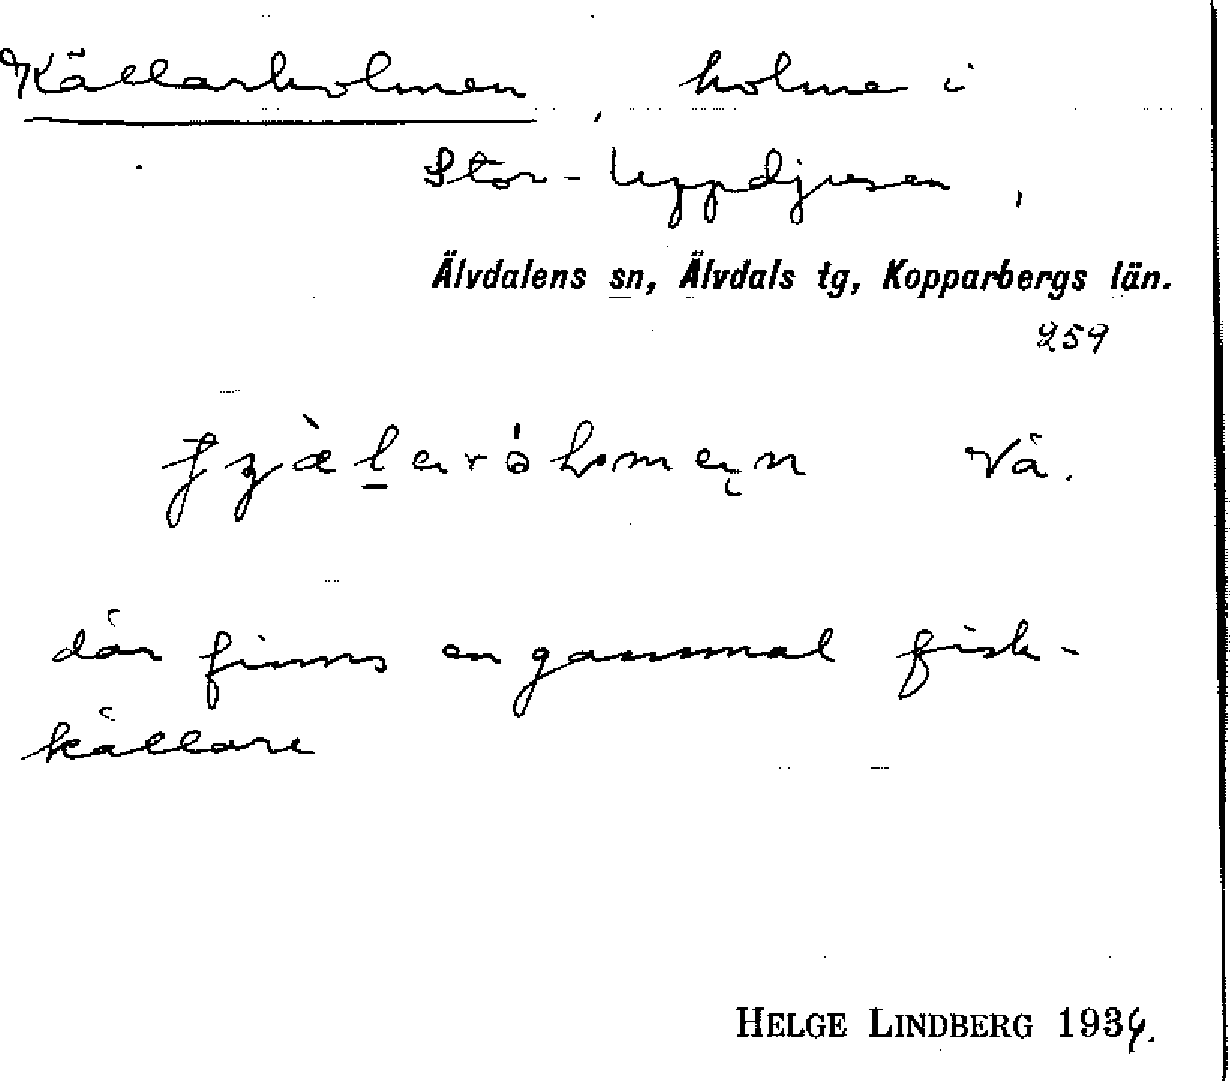 Källarholmen, holme i
Stor-Uppdjusen,
Älvdalens sn, Älvdals tg, Kopparbergs län.
259
Vå.
där finns en gammal fisk-
källare
HELGE LINDBERG 1934.